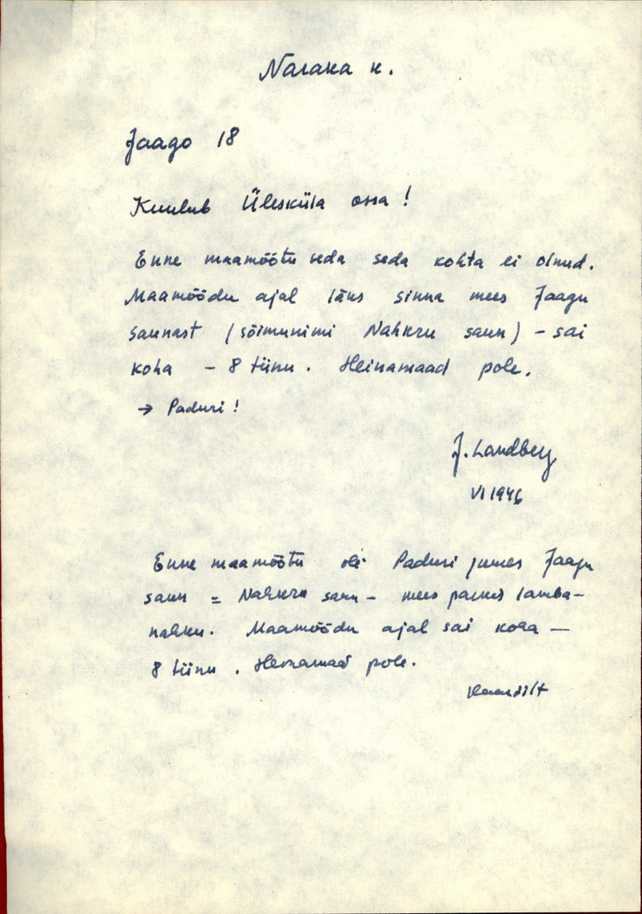 Naraka k.
Jaago 18
Kuulub Ülesküla ossa!
Enne maamõõtu seda seda kohta ei olnud.
Maamõõdu ajal läks sinna mees Jaagu
saunast (sõimunimi Nahkru saun) – sai
koha – 8 tiinu. Heinamaad pole.
→ Paduri!
J. Landberg
VI 1946
Enne maamõõtu oli Paduri juures Jaagu
saun = Nahkru saun – mees parkis lamba-
nahku. Maamõõdu ajal sai koha –
8 tiinu. Heinamaad pole.